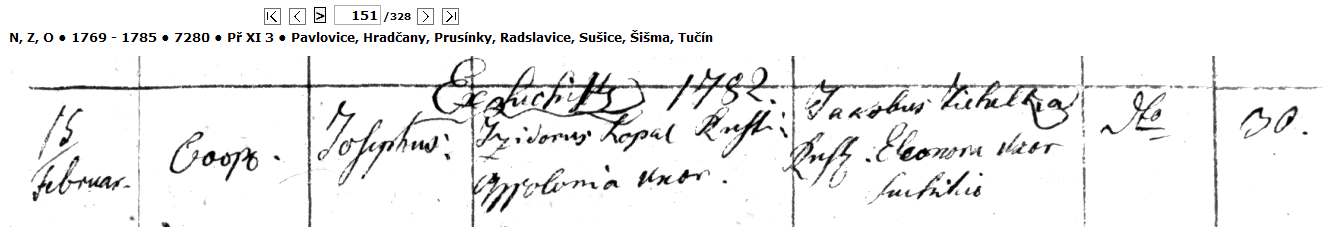 151 /328
N, Z, O ● 1769 - 1785 ● 7280 ● Př XI 3 ● Pavlovice, Hradčany, Prusínky, Radslavice, Sušice, Šišma, Tučín
Ex Suchitz 1782.
15 Februar.
Coop.
Josephus.
Izidorus Kopal Rusti:
Appolonia uxor.
Jakobus
Rust. Eleonora uxor
Suchitio
Dto
30.